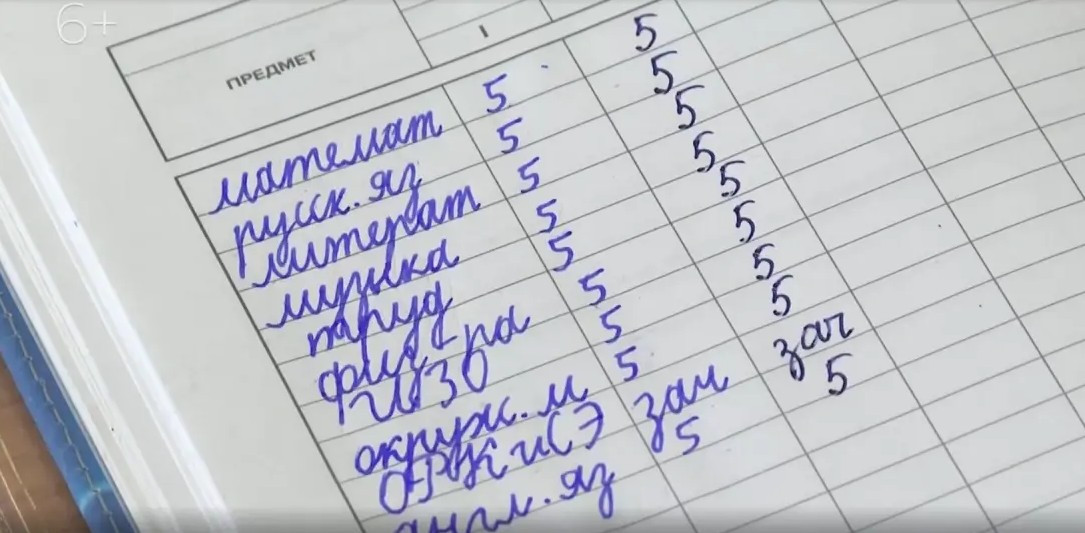 6+
ПРЕДМЕТ I
математ 5 5
русск. яз 5 5
литерат 5 5
музыка 5 5
труд 5 5
физ-ра 5 5
ИЗО 5 5
окруж. м 5 5
ОРКиСЭ зач зач
англ. яз 5 5